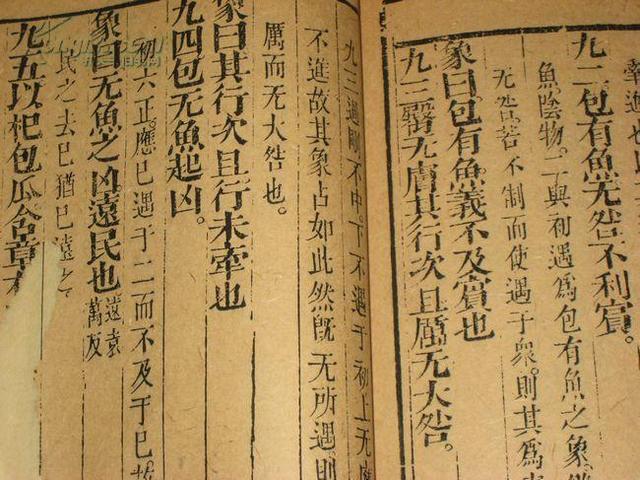 九二包有魚无咎不利賓。
魚陰物。二與初遇爲包有魚之象。
无咎。若不制而使遇于衆。則其爲
象曰包有魚義不及賓也
九三臀无膚其行次且厲无大咎。
九三過剛不中。下不遇于初上无應
不進故其象占如此然旣无所遇。則
厲而无大咎也。
象曰其行次且行未牽也
九四包无魚起凶。
初六正。應已遇于二而不及于已故
象曰无魚之凶遠民也
遠袁
萬反
民之去已猶已遠之
九五以杞包瓜含章